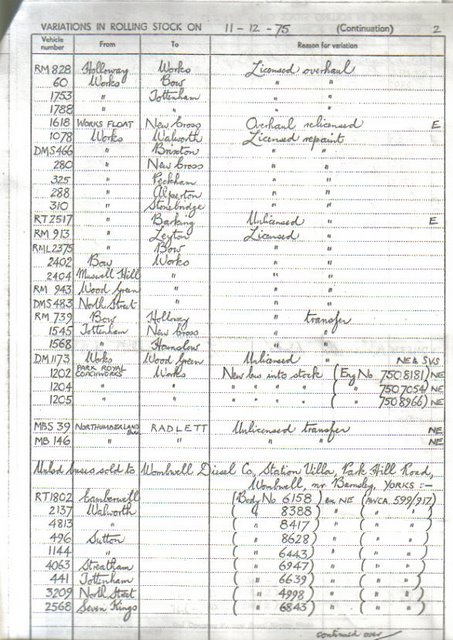 VARIATIONS IN ROLLING STOCK ON 11-12-75 (Continuation) 2
Vehicle number From To Reason for variation
RM 828 Holloway Works Licensed overhaul
60 Works Bow " "
1753 " Tottenham " "
1788 " " " "
1618 WORKS FLOAT New Cross Overhaul relicensed E
1078 Works Walworth Licensed repaint
DMS 466 " Brixton " "
280 " New Cross " "
325 " Peckham " "
288 " Alperton " "
310 " Stonebridge " "
RT 2517 " Barking Unlicensed " E
RM 913 " Leyton Licensed "
RML 2375 " Bow " "
2402 Bow Works " "
2404 Muswell Hill " " "
RM 943 Wood Green " " "
DMS 483 North Street " " "
RM 739 Bow Holloway " transfer
1545 Tottenham New Cross " "
1568 " Hounslow " "
DM 1173 Works Wood Green Unlicensed " NE & SVS
1202 PARK ROYAL COACHWORKS Works New bus into stock (Eng No 7508181) NE
1204 " " " " " " ( " " 7507054) NE
1205 " " " " " " ( " " 7508966) NE
MBS 39 NORTHUMBERLAND RADLETT Unlicensed transfer NE
MB 146 " " " " NE
Unlsd buses sold to Wombwell Diesel Co, Station Villa, Park Hill Road,
Wombwell, nr Barnsley, YORKS :-
RT 1802 Camberwell (Bdy No 6158) ex NE (AVCA 599/917)
2137 Walworth ( " 8388) " ( " " )
4813 " ( " 8417) " ( " " )
496 Sutton ( " 8628) " ( " " )
1144 " ( " 6443) " ( " " )
4063 Streatham ( " 6947) " ( " " )
441 Tottenham ( " 6639) " ( " " )
3209 North Street ( " 4998) " ( " " )
2568 Seven Kings ( " 6843) " ( " " )
continued over